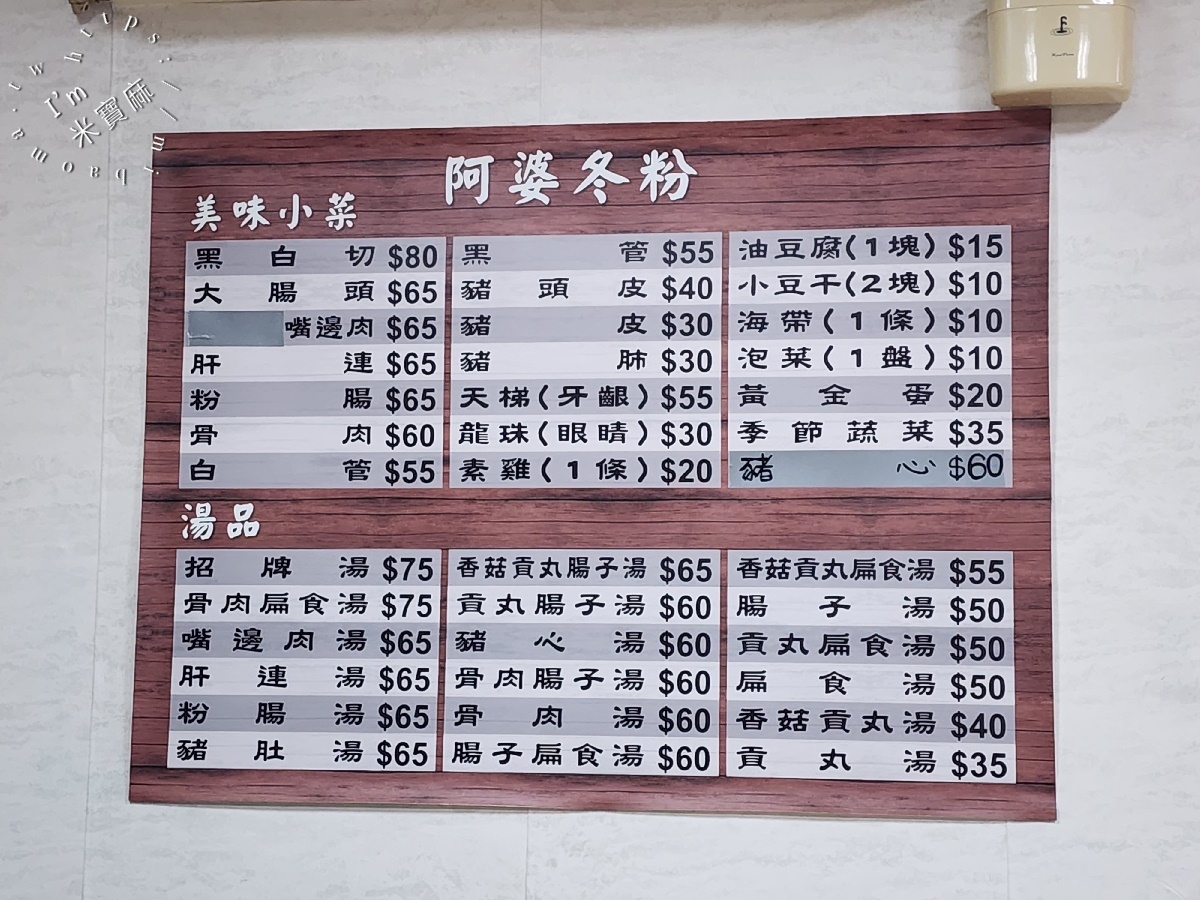 I'm 米寶麻
阿婆冬粉
美味小菜
黑白切 $80
大腸頭 $65
嘴邊肉 $65
肝連 $65
粉腸 $65
骨肉 $60
白管 $55
黑管 $55
豬頭皮 $40
豬皮 $30
豬肺 $30
天梯(牙齦) $55
龍珠(眼睛) $30
素雞(1條) $20
油豆腐(1塊) $15
小豆干(2塊) $10
海帶(1條) $10
泡菜(1盤) $10
黃金蛋 $20
季節蔬菜 $35
豬心 $60
湯品
招牌湯 $75
骨肉扁食湯 $75
嘴邊肉湯 $65
肝連湯 $65
粉腸湯 $65
豬肚湯 $65
香菇貢丸腸子湯 $65
貢丸腸子湯 $60
豬心湯 $60
骨肉腸子湯 $60
骨肉湯 $60
腸子扁食湯 $60
香菇貢丸扁食湯 $55
腸子湯 $50
貢丸扁食湯 $50
扁食湯 $50
香菇貢丸湯 $40
貢丸湯 $35